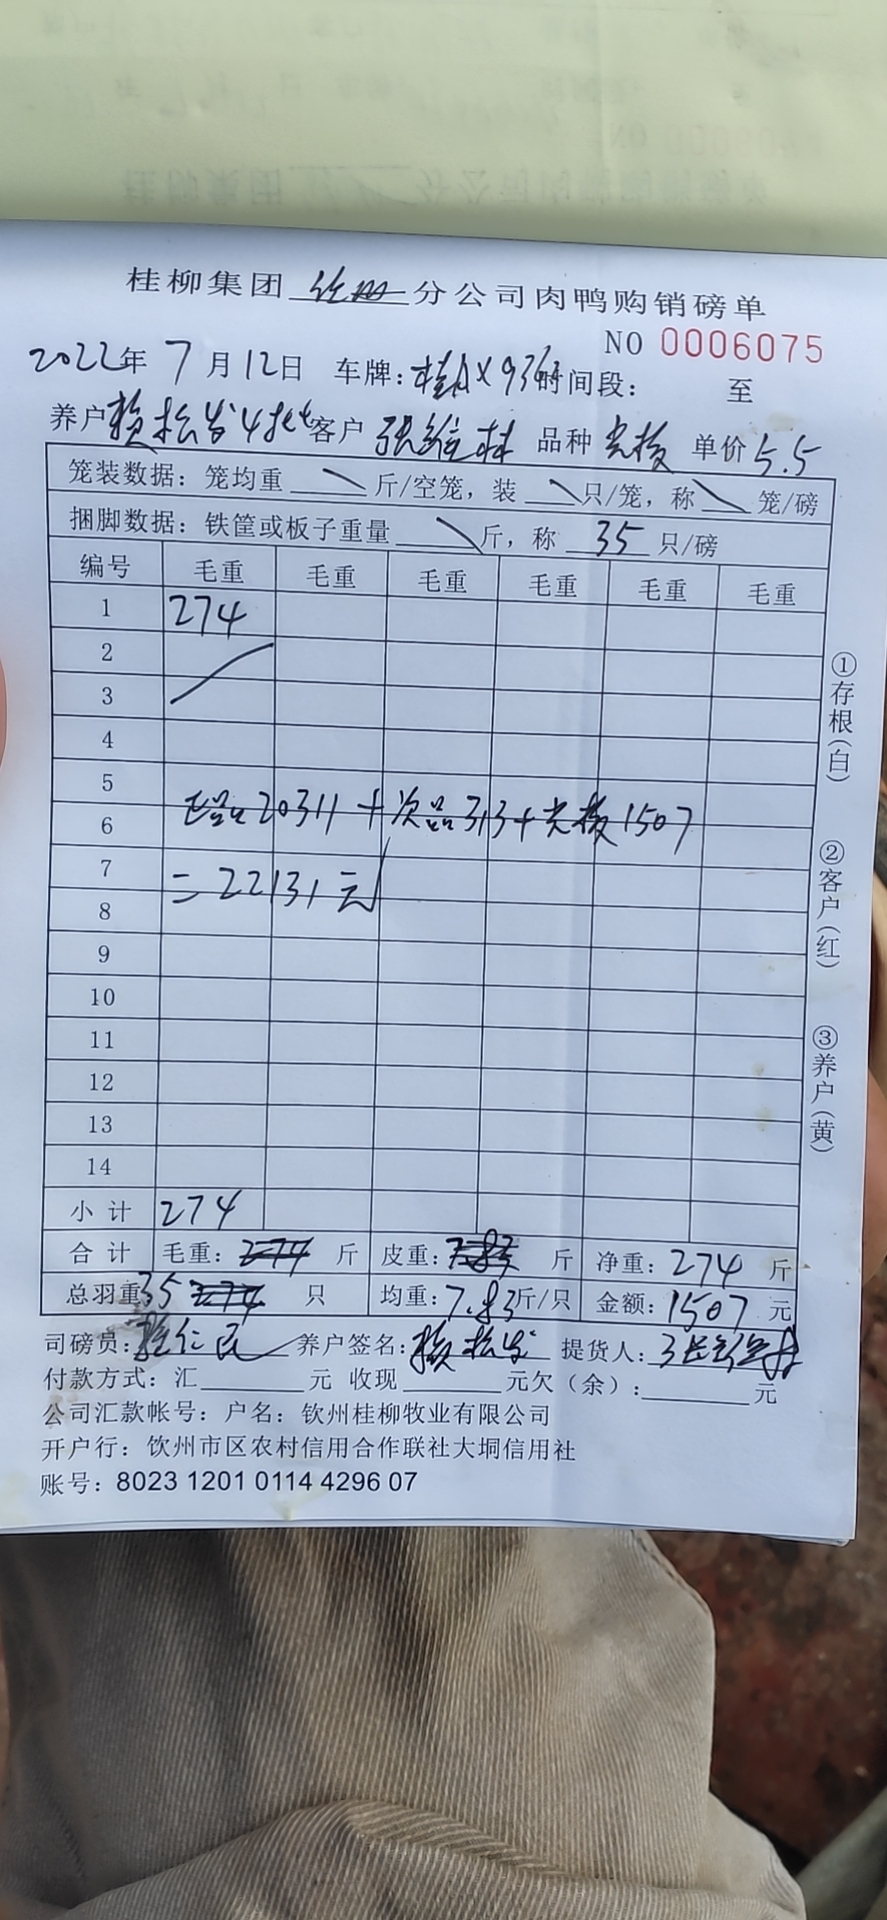 桂柳集团 分公司肉鸭购销磅单
NO 0006075
2022年 7月12日 车牌: 时间段: 至
养户 4批 客户 张维林 品种 单价 5.5
笼装数据: 笼均重 斤/空笼, 装 只/笼, 称 笼/磅
捆脚数据: 铁筐或板子重量 斤, 称 35 只/磅
编号 毛重 毛重 毛重 毛重 毛重 毛重
1 274
2
3
4
5
正品20311+次品313+ 1507
6
7
=22131元
8
9
10
11
12
13
14
小计 274
合计 毛重: 斤 皮重: 斤 净重: 274 斤
总羽重: 35 只 均重: 7.83斤/只 金额: 1507 元
司磅员: 养户签名: 提货人: 张维林
付款方式: 汇 元 收现 元欠(余): 元
公司汇款帐号: 户名: 钦州桂柳牧业有限公司
开户行: 钦州市区农村信用合作联社大垌信用社
账号: 8023 1201 0114 4296 07
①存根(白)
②客户(红)
③养户(黄)